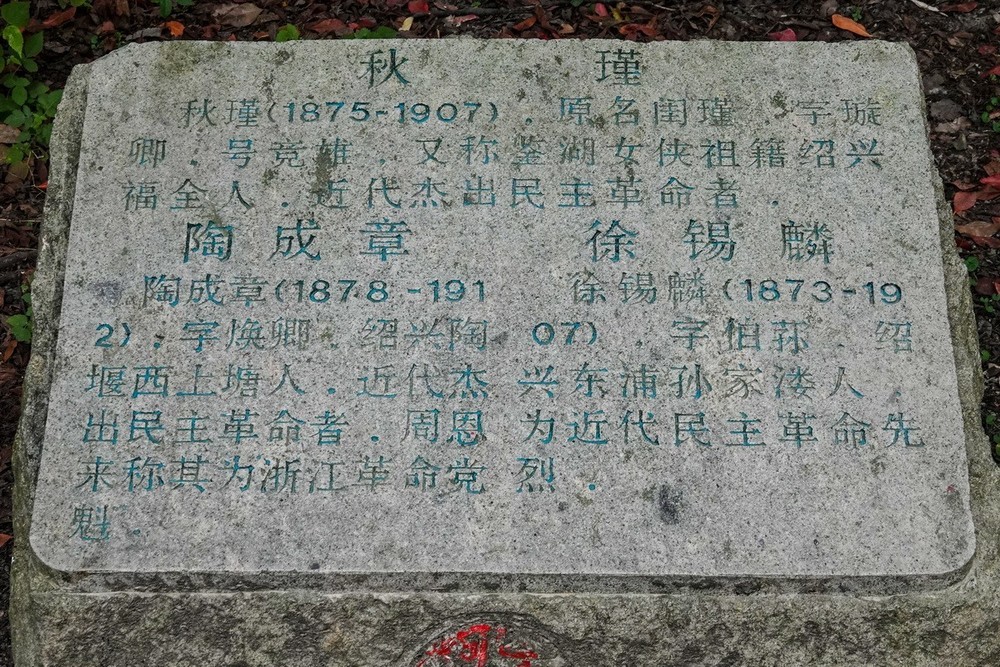 秋瑾
秋瑾(1875-1907)．原名闺瑾．字璇
卿．号竞雄．又称鉴湖女侠祖籍绍兴
福全人．近代杰出民主革命者．
陶成章
陶成章(1878-191
2)．字焕卿．绍兴陶
堰西上塘人．近代杰
出民主革命者．周恩
来称其为浙江革命党
魁．
徐锡麟
徐锡麟(1873-19
07)．字伯荪．绍
兴东浦孙家溇人．
为近代民主革命先
烈．